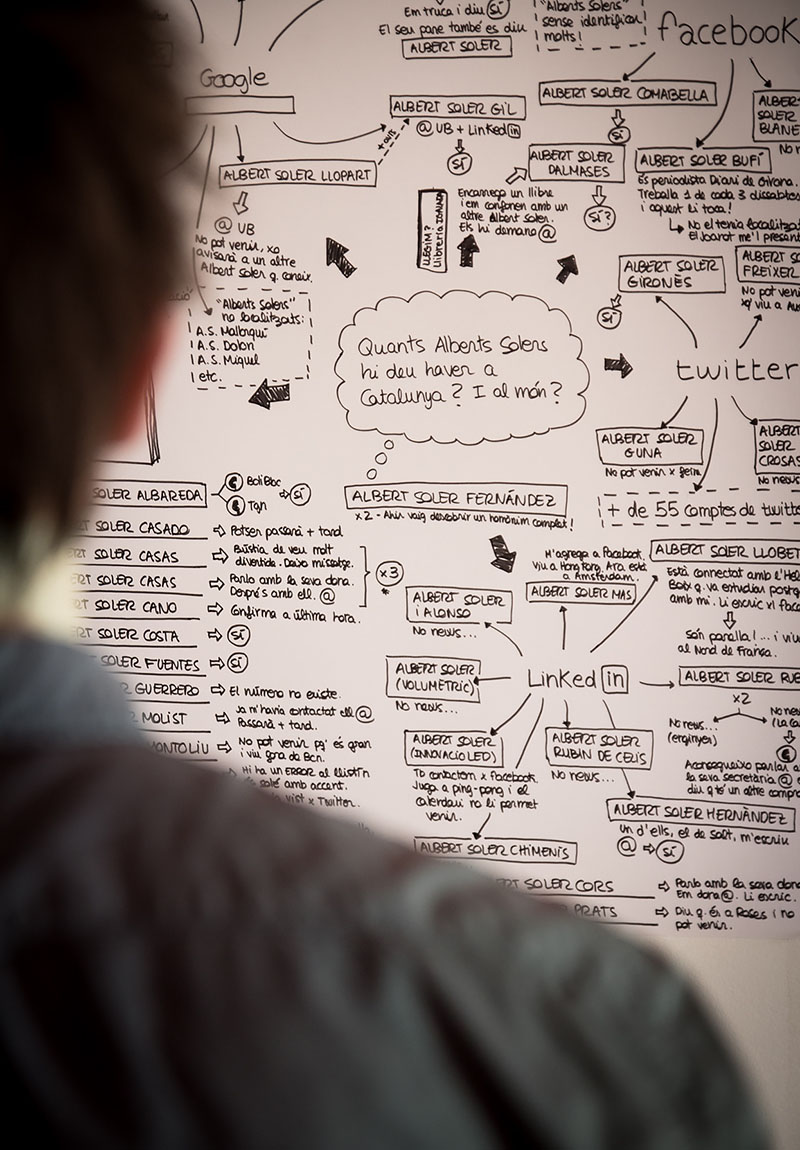 Em truca i diu Sí
El seu pare també es diu
ALBERT SOLER
"Alberts Solers"
sense identificar
molts!
facebook
Google
ALBERT SOLER GIL
@ UB + Linked in
Sí
ALBERT SOLER LLOPART
@ UB
No pot venir, xo
avisarà a un altre
Albert Soler q. coneix.
"Alberts Solers"
no localitzats:
A.S. Mallorquí
A.S. Dolon
A.S. Miquel
etc.
ALBERT SOLER COMABELLA
Sí
ALBERT SOLER
DALMASES
Sí?
Encarrega un llibre
i em confonen amb un
altre Albert Soler.
Els hi demano @
LLEGIM?
Llibreria
ALBERT SOLER BUFÍ
És periodista Diari de Girona.
Treballa 1 de cada 3 dissabtes
i aquest li toca!
SOLER
No el tenia localitzat
ALBERT SOLER
GIRONÈS
Sí
FREIXER
No pot veni
Quants Alberts Solers
hi deu haver a
Catalunya? I al món?
twitter
ALBERT SOLER
GUNA
No pot venir x feina
SOLER
CROSAS
No news
+ de 55 comptes de twitte
SOLER ALBAREDA
BoliBac
Tgn
Sí
SOLER CASADO
Potser passarà + tard
SOLER CASAS
Bústia de veu molt
divertida. Deixo missatge.
SOLER CASAS
Parlo amb la seva dona.
Després amb ell. @
SOLER CANO
Confirma a última hora.
x3
SOLER COSTA
Sí
SOLER FUENTES
Sí
GUERRERO
El número no existe.
MOLIST
Ja m'havia contactat ell @
Passarà + tard.
MONTOLIU
No pot venir pq' és gran
i viu fora de Bcn.
Hi ha un ERROR al llistín
amb accent.
x Twitter.
ALBERT SOLER FERNÁNDEZ
x2 - Ahir vaig descobrir un homònim complet!
M'agrega a Facebook.
viu a Hong Kong. Ara està
a Amsterdam.
ALBERT SOLER MAS
ALBERT SOLER
i ALONSO
No news...
ALBERT SOLER LLOBET
Està connectat amb l'Hel
amb mi. Li escric x1 face
Són parella! ... i viu
al Nord de França.
ALBERT SOLER
(VOLUMETRIC)
No news...
Linked in
ALBERT SOLER RUE
x2
No news...
(enginyer)
No new
Aconsegueixo parlar a
la seva secretària @ e
diu q té un altre compro
ALBERT SOLER
(INNOVACIÓ LED)
To contactem x facebook.
Juga a ping-pong i el
calendari no li permet
venir.
ALBERT SOLER
RUBÍN DE CELIS
No news...
ALBERT SOLER HERNÀNDEZ
Un d'ells, el de Salt, m'escriu
@ Sí
ALBERT SOLER CHIMENIS
SOLER CORS
Parlo amb la seva dona
Em dona @. Li escric.
PRATS
Diu q. és a Roses i no
pot venir.